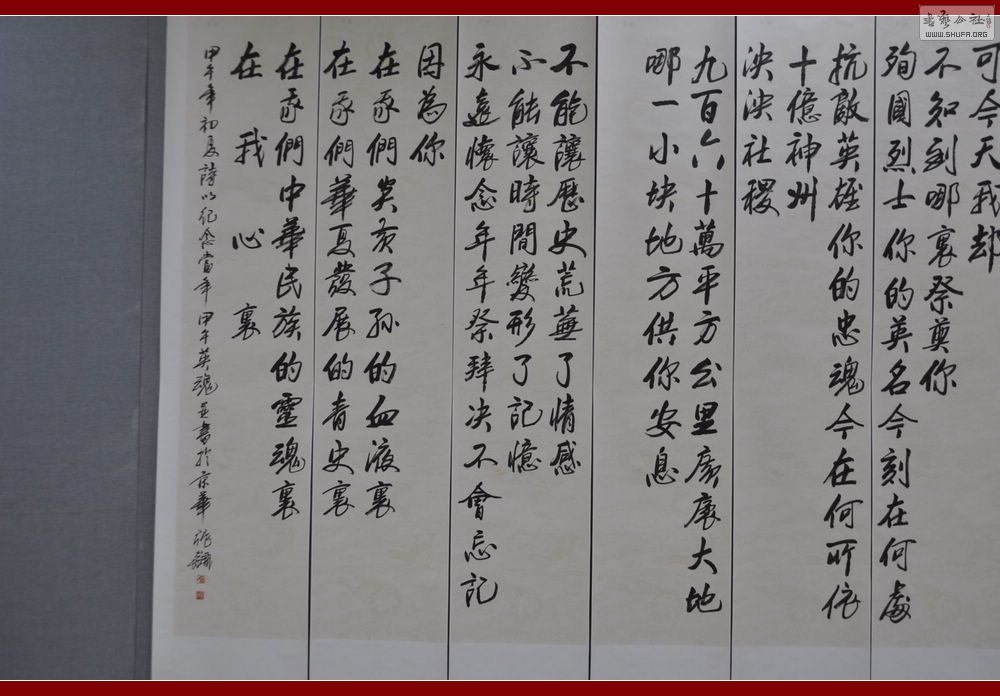 可今天我却
不知到哪裏祭奠你
殉國烈士你的英名今刻在何處
抗敵英雄你的忠魂今在何所依
十億神州
泱泱社稷
九百六十萬平方公里廣廣大地
哪一小块地方供你安息
不能讓歷史荒蕪了情感
不能讓時間變形了記憶
永遠懷念年年祭拜决不會忘記
因為你
在我們炎黄子孙的血液裏
在我們華夏發展的青史裏
在我們中華民族的靈魂裏
在我心裏
甲午年初夏詩以紀念當年甲午英魂並書於京華
書藝公社
WWW.SHUFA.ORG